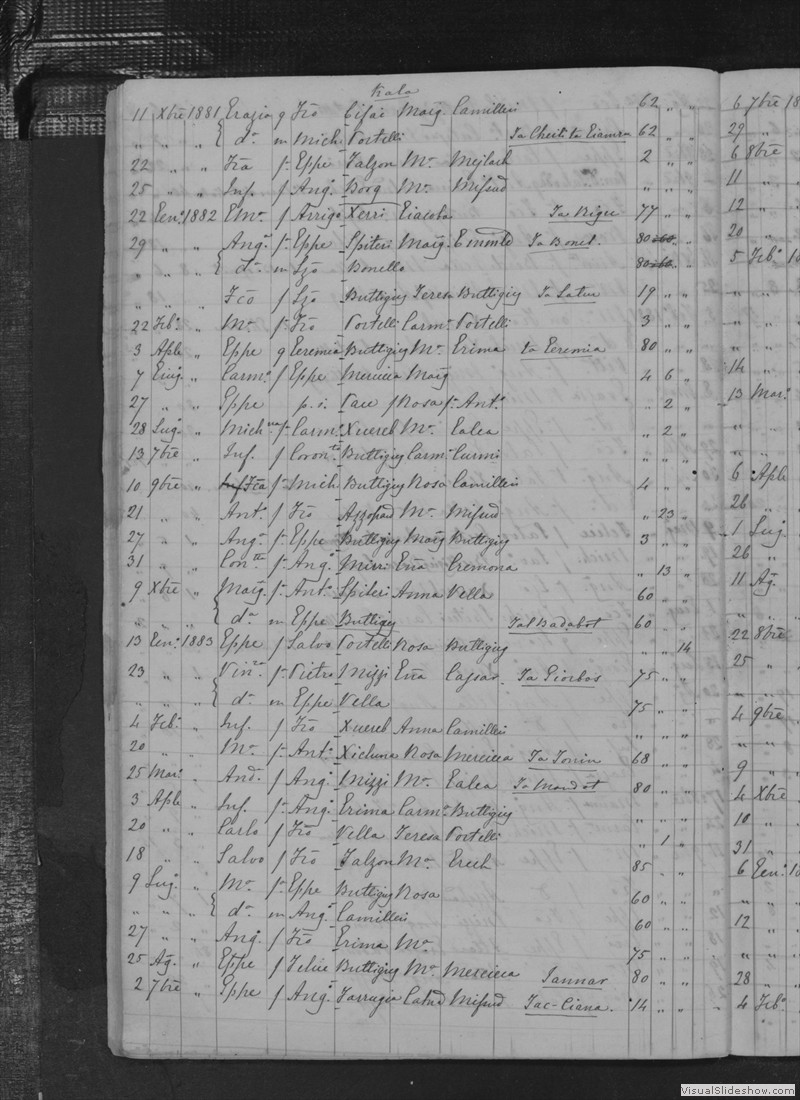 Kala
11 Xbre 1881 Grazia q Fco Cifai Marg Camilleri 62 " "
" " " { da m Mich Portelli Ta Cheit ta 62 " "
22 " " Fca f Gppe Falzon Ma Mejlach 2 " "
25 " " Inf. f Ang Borg Ma Mifsud " " "
22 Gen 1882 f Arrigo Xerri Giacoba Ta 77 " "
29 " " Anga f Gppe Spiteri Marg Ta Bonel. 80
" " " { da m Bonello 80
" " " Fco f Buttigieg Teresa Buttigieg Ta 19 " "
22 Feb " Ma f Fco Portelli Carma Portelli 3 " "
3 Aple " Gppe q Geremia Buttigieg Ma Grima ta Geremia 80 " "
7 Giug " Carma f Gppe Mercieca Marg 4 6 "
27 " " Gppe p. i. Pace f Rosa f Ant " 2 "
28 Lug " f Carm Xuereb Ma Galea " 2 "
13 7bre " Inf f Buttigieg Carma Curmi " " "
10 9bre " Fca f Mich Buttigieg Rosa Camilleri 4 " "
21 " " Ant f Fco Azzopard Ma Mifsud " 23 "
27 " " Anga f Gppe Buttigieg Marg Buttigieg 3 " "
31 " " f Ang Cremona " 13 "
9 Xbre " Marg f Ant Spiteri Anna Vella 60 " "
" " " { da m Gppe Buttigieg Tal Badabot 60 " "
13 Gen 1883 Gppe f Salvo Portelli Rosa Buttigieg " " 14
23 " " f Pietro Mizzi Ta Giorbos 75 " "
" " " { da m Gppe Vella 75 " "
4 Feb " Inf f Fco Xuereb Anna Camilleri " " "
20 " " Ma f Ant Xicluna Rosa Mercieca Ta Tonin 68 " "
25 Mar " And f Ang Mizzi Ma Galea Ta 80 " "
3 Aple " Inf f Ang Grima Carma Buttigieg " " "
20 " " Carlo f Fco Vella Teresa Portelli " 1 "
18 " " Salvo f Fco Falzon Ma Grech 85 " "
9 Lug " Ma f Gppe Buttigieg Rosa 60 " "
" " " { da m Ang Camilleri 60 " "
27 " " Ang f Fco Grima Ma 75 " "
25 Ag " Gppe f Felice Buttigieg Ma Mercieca Jannar 80 " "
2 7bre " Gppe f Ang Farrugia Mifsud Tac-Ciana. 14 " "
6 7bre
29 "
6 8bre
11 "
12 "
20 "
5 Feb
14 "
13 Mar
6 Aple
26 "
1 Lug
26 "
11 Ag
22 8bre
25 "
4 9bre
9 "
4 Xbre
10 "
31 "
6 Gen
12 "
28 "
4 Feb
VisualSlideshow.com